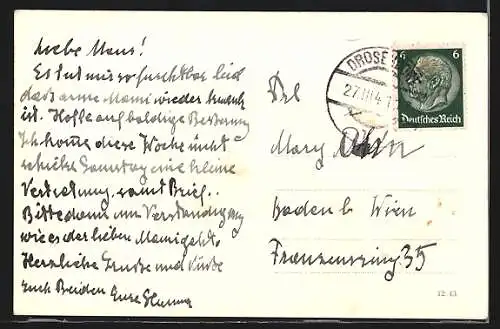 Liebe Maus!
Es tut mir so furchtbar leid
dass arme Mami wieder krank
ist. Hoffe auf baldige Besserung
Ich komme diese Woche nicht
schicke Sonntag eine kleine
samt Brief.
Bitte dann um Verständigung
wie es der lieben Mami geht.
Herzliche Grüsse und Küsse
Euch Beiden Eure
DROSE
27.III.4
6 6
Deutsches Reich
Frl
Mary
Baden b Wien
Franzensring 35
12 43